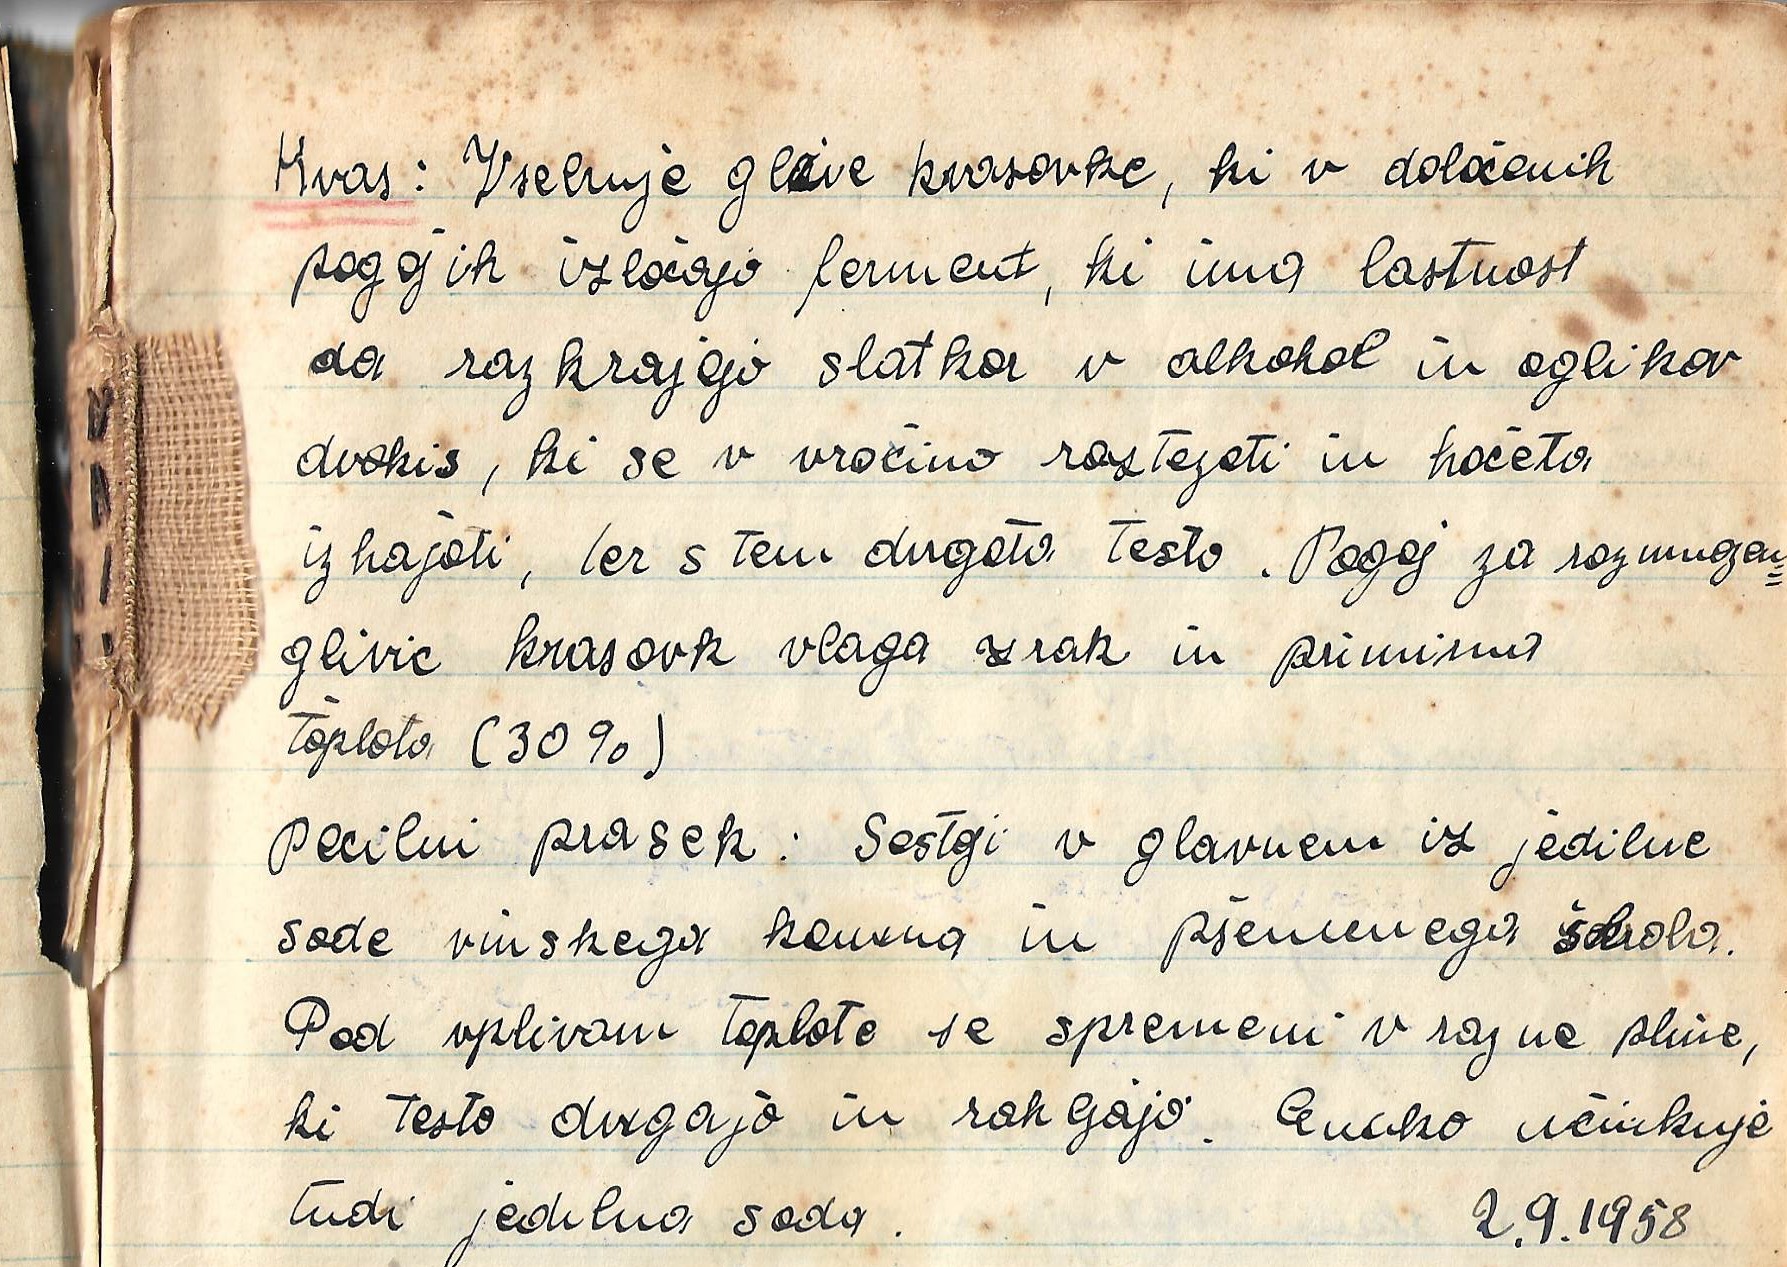 Kvas: Vsebuje glive kvasovke, ki v določenih
pogojih izločajo ferment, ki ima lastnost
da razkrajajo slatkor v alkohol in oglikov
dvokis, ki se v vročino raztezati in hočeta
izhajati, ter s tem dvigata testo. Pogoj za razmnožen=
glivic kvasovk vlaga zrak in primirna
toplota (30%)
Pecilni prasek: Sestoji v glavnem iz jedilne
sode vinskega kamna in pšeničnega škroba.
Pod vplivom toplote se spremeni v razne pline,
ki testo dvigajo in rahljajo. Enako učinkuje
tudi jedilna soda. 2.9.1958